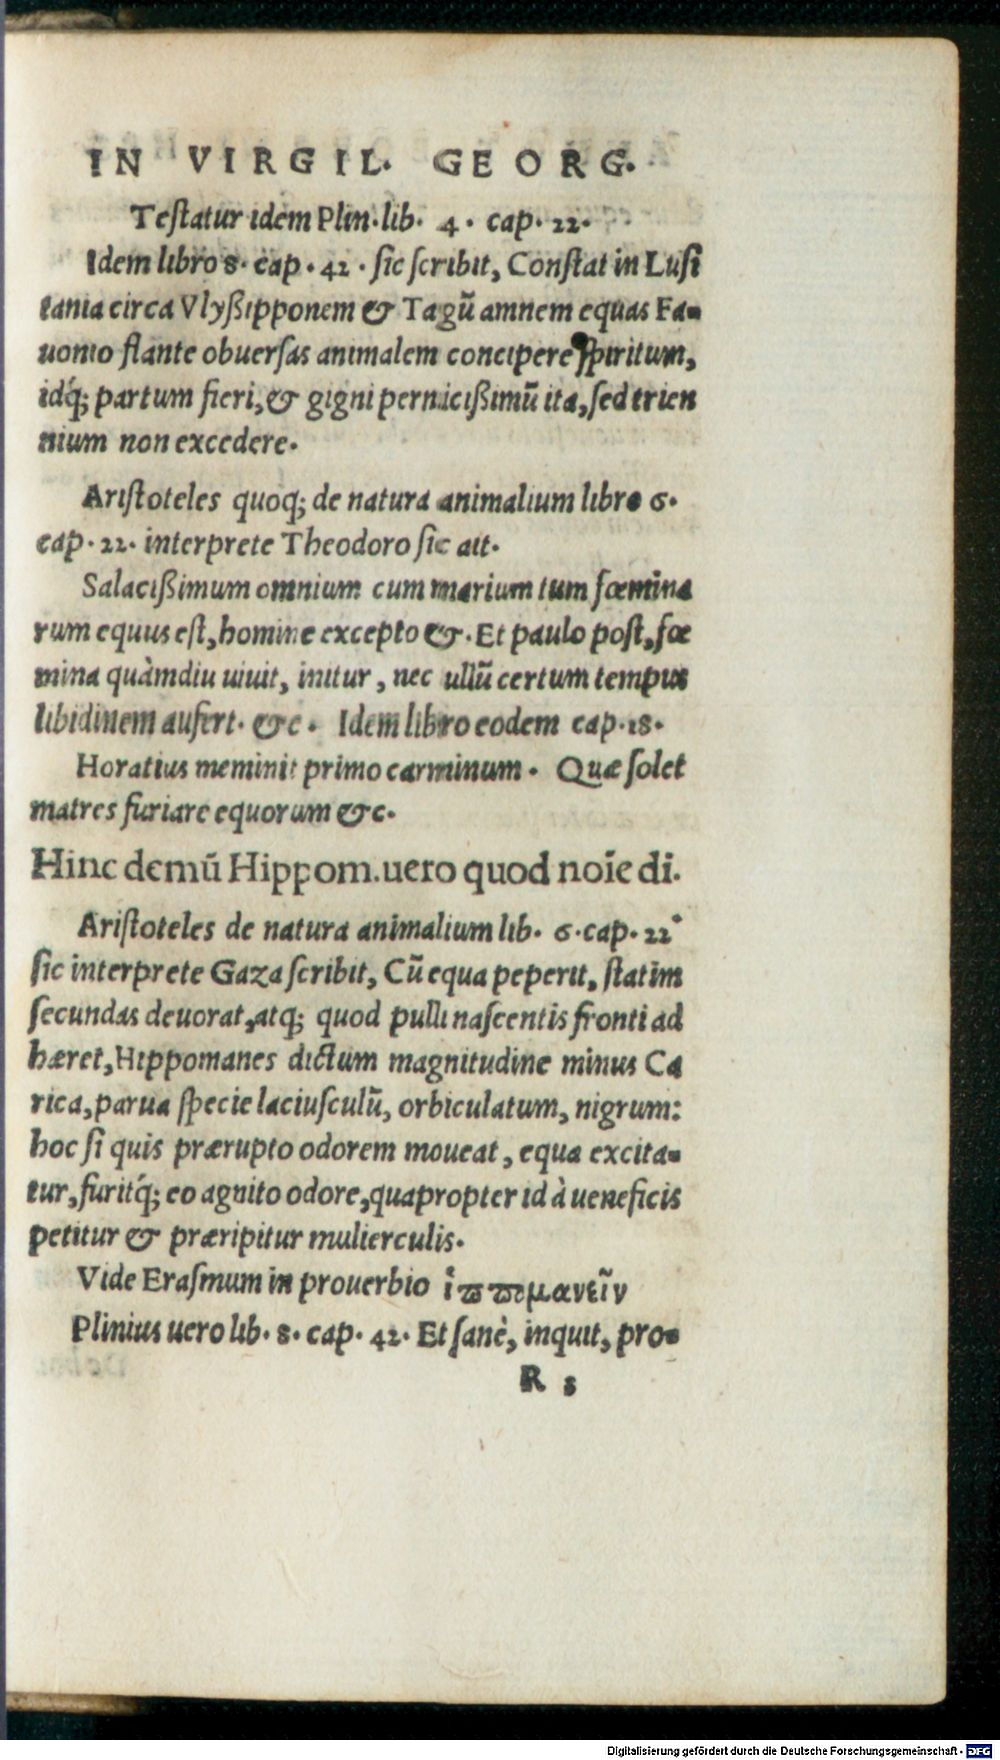 IN VIRGIL. GEORG.
Teſtatur idem Plin. lib. 4. cap. 22.
Idem libro 8. cap. 42. ſic ſcribit, Conſtat in Luſi
tania circa Vlyßipponem & Tagũ amnem equas Fa-
uonio flante obuerſas animalem concipere ſpiritum,
idq́; partum fieri, & gigni pernicißimũ ita, ſed trien
nium non excedere.
Ariſtoteles quoq; de natura animalium libro 6.
cap. 22. interprete Theodoro ſic ait.
Salacißimum omnium cum marium tum fœmina
rum equus eſt, homine excepto &. Et paulo poſt, fœ
mina quàmdiu uiuit, initur, nec ullũ certum tempus
libidinem aufert. &c. Idem libro eodem cap. 18.
Horatius meminit primo carminum. Quæ ſolet
matres furiare equorum &c.
Hinc demũ Hippom. uero quod noīe di.
Ariſtoteles de natura animalium lib. 6. cap. 22.
ſic interprete Gaza ſcribit, Cũ equa peperit, ſtatim
ſecundas deuorat, atq; quod pulli naſcentis fronti ad
hæret, Hippomanes dictum magnitudine minus Ca
rica, parua ſpecie laciuſculũ, orbiculatum, nigrum:
hoc ſi quis prærupto odorem moueat, equa excita-
tur, furitq́; eo agnito odore, quapropter id à ueneficis
petitur & præripitur mulierculis.
Vide Eraſmum in prouerbio ἱϖϖομανεῖν
Plinius uero lib. 8. cap. 42. Et ſanè, inquit, pro-
R 5
Digitalisierung gefördert durch die Deutsche Forschungsgemeinschaft - DFG